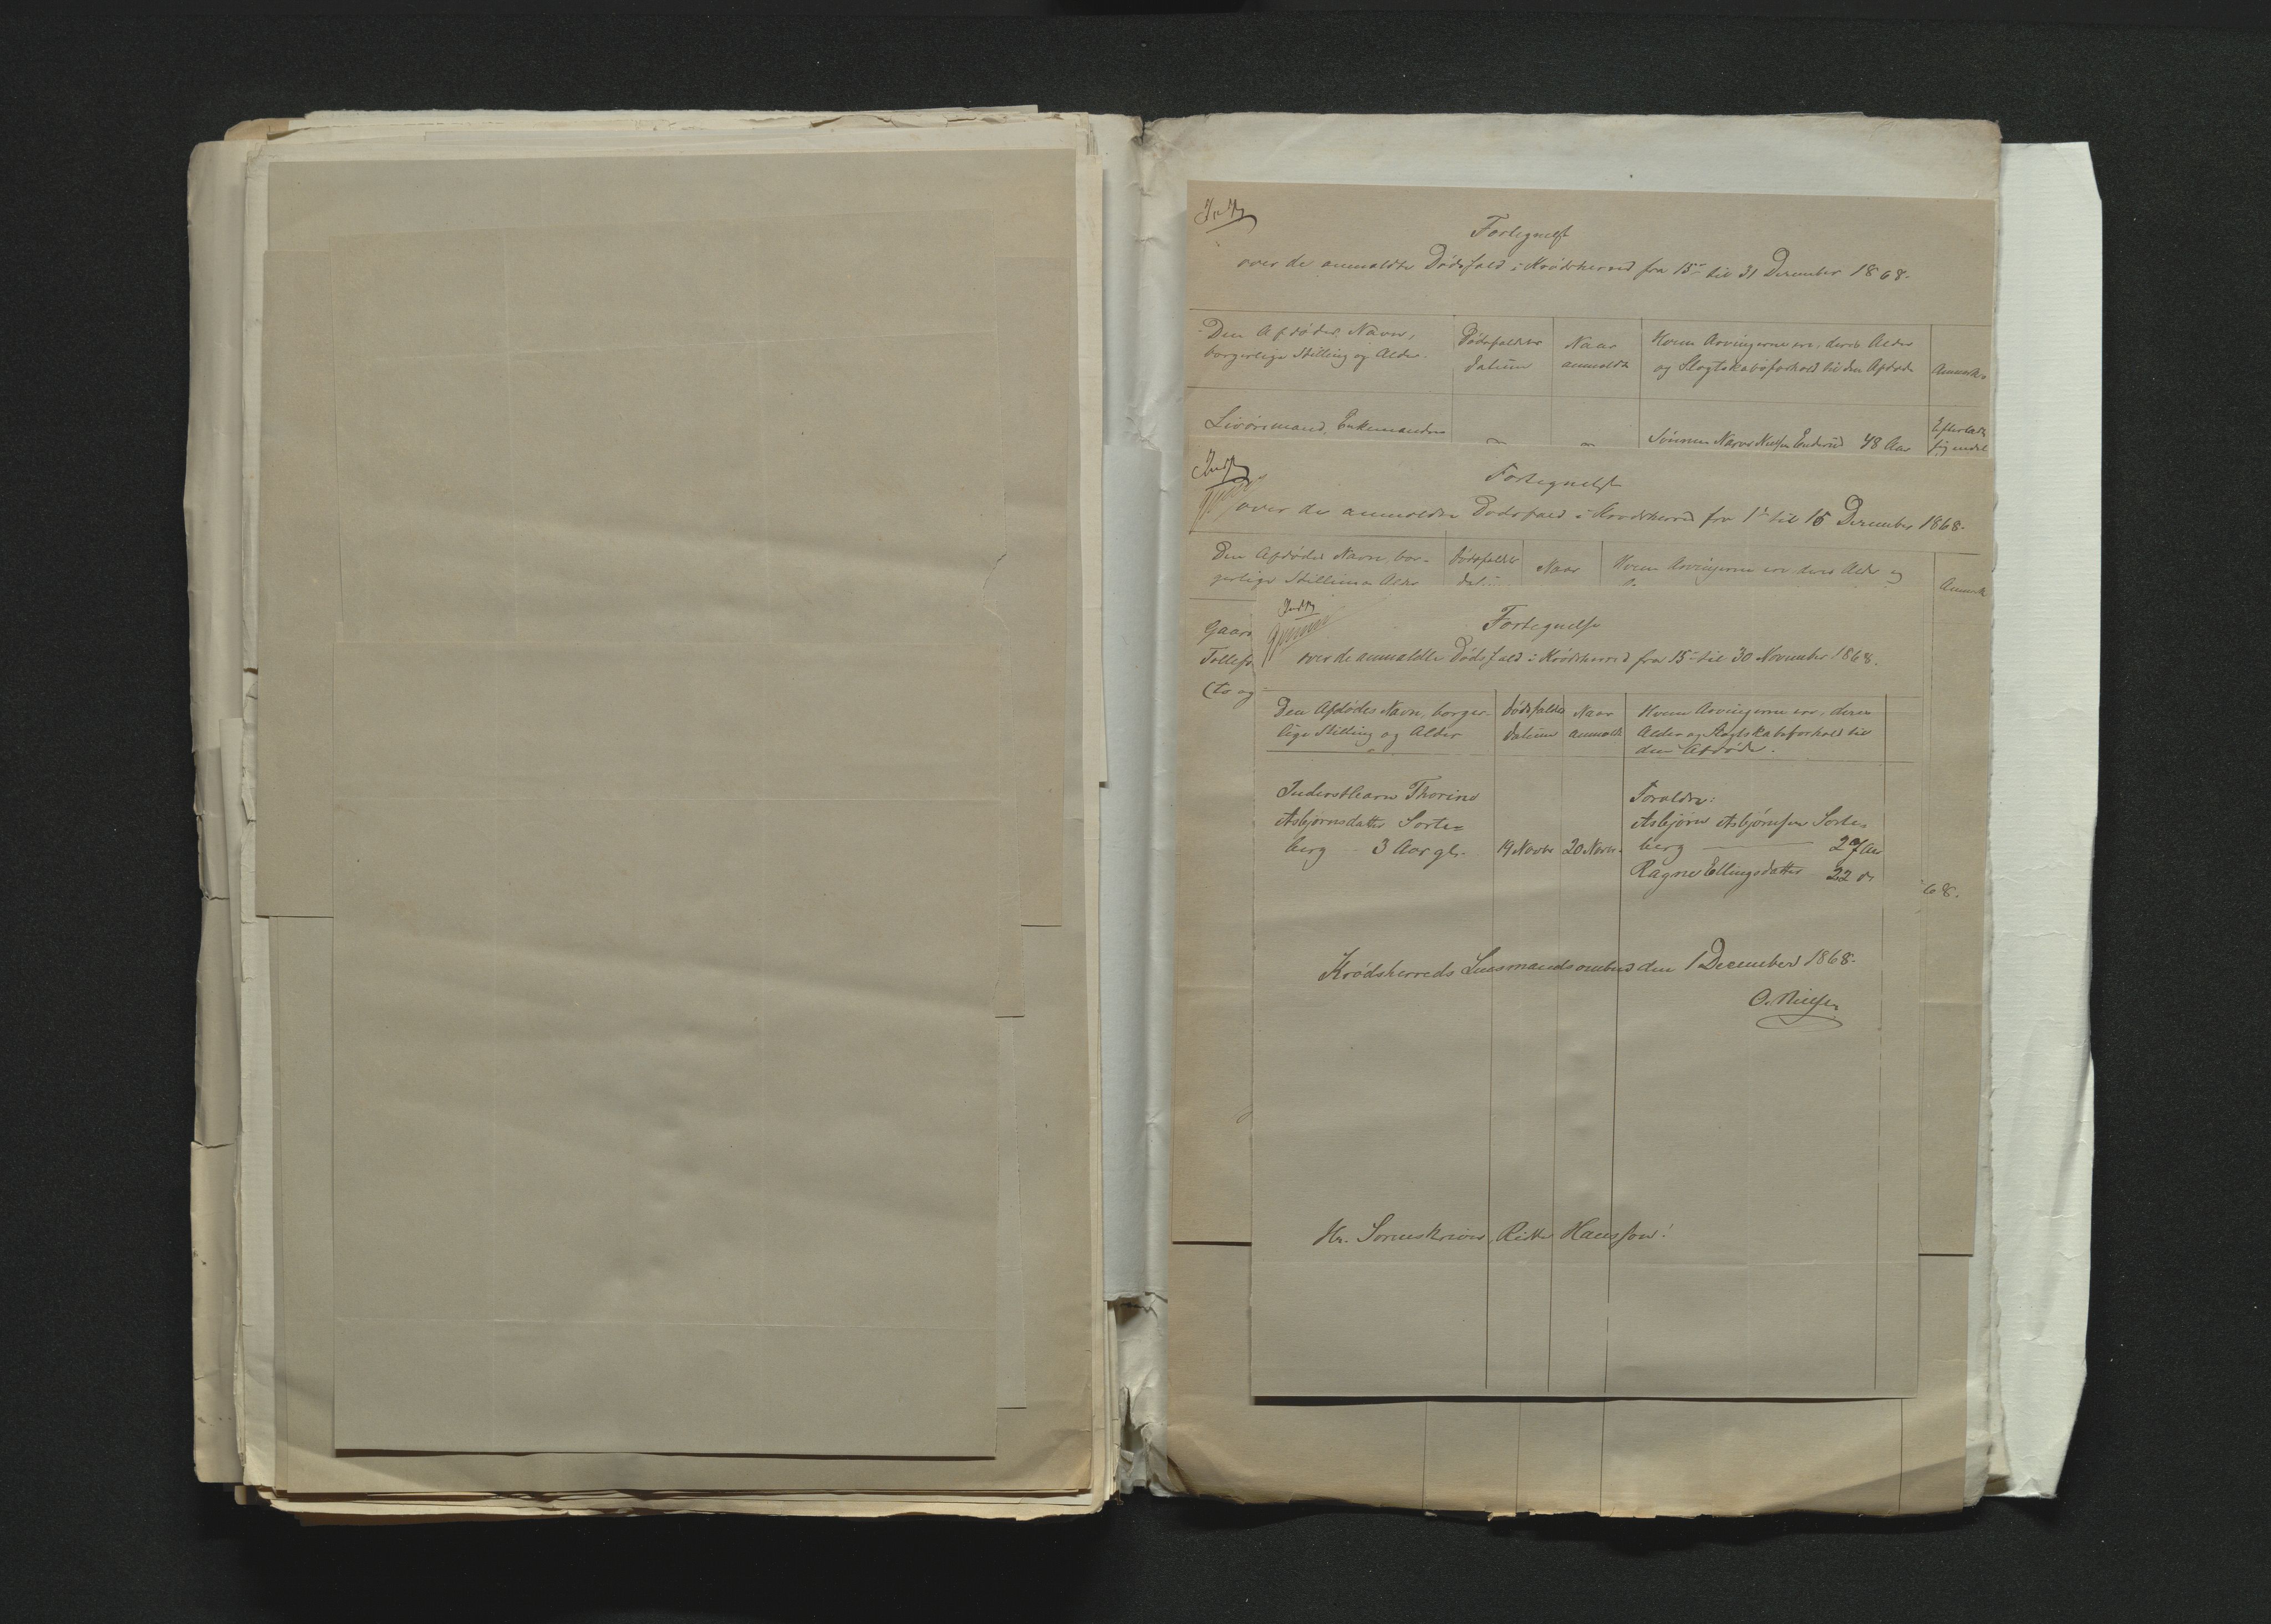 Fortegnelse
over de anmeldte Dødsfald i Krødsherred fra 15de til 31 December 1868.
Den Afdødes Navn,
borgerlige Stilling og Alder.
Dødsfaldets
Datum
Naar
anmeldt
Hvem Arvingerne ere, deres Alder
og Slægtskabsforhold til den Afdøde
Anmærk.
Livøremand, Enkemanden
Sønnen Narve Nielsen Enderud 48 Aar
Efterlader
sig endel
Fortegnelse
over de anmeldte Dødsfald i Krødsherred fra 1de til 15 December 1868.
Den Afdødes Navn, bor-
gerlige Stilling og Alder
Dødsfaldets
Naar
Hvem Arvingerne ere, deres Alder og
Anmærk
Gaar
Tollefs
(to og
Fortegnelse
over de anmeldte Dødsfald i Krødsherred fra 15de til 30 November 1868.
Den Afdødes Navn, borger-
lige Stilling og Alder
Dødsfaldets
Datum
Naar
anmeldt
Hvem Arvingerne ere, deres
Alder og Slægtskabsforhold til
den Afdøde.
Inderstbarn Thorine
Asbjørnsdatter Sorte=
berg - 3 Aar gl. 19 Novbr 20 Novbr.
Forældre:
Asbjørn Asbjørnsen Sorte-
berg 27 Aar
Ragne Ellingsdatter 22 do
68.
Krødsherreds Lensmandsombud den 1 December 1868.
O. Nielsen
Hr. Sorenskriver, Ridder Hansson!